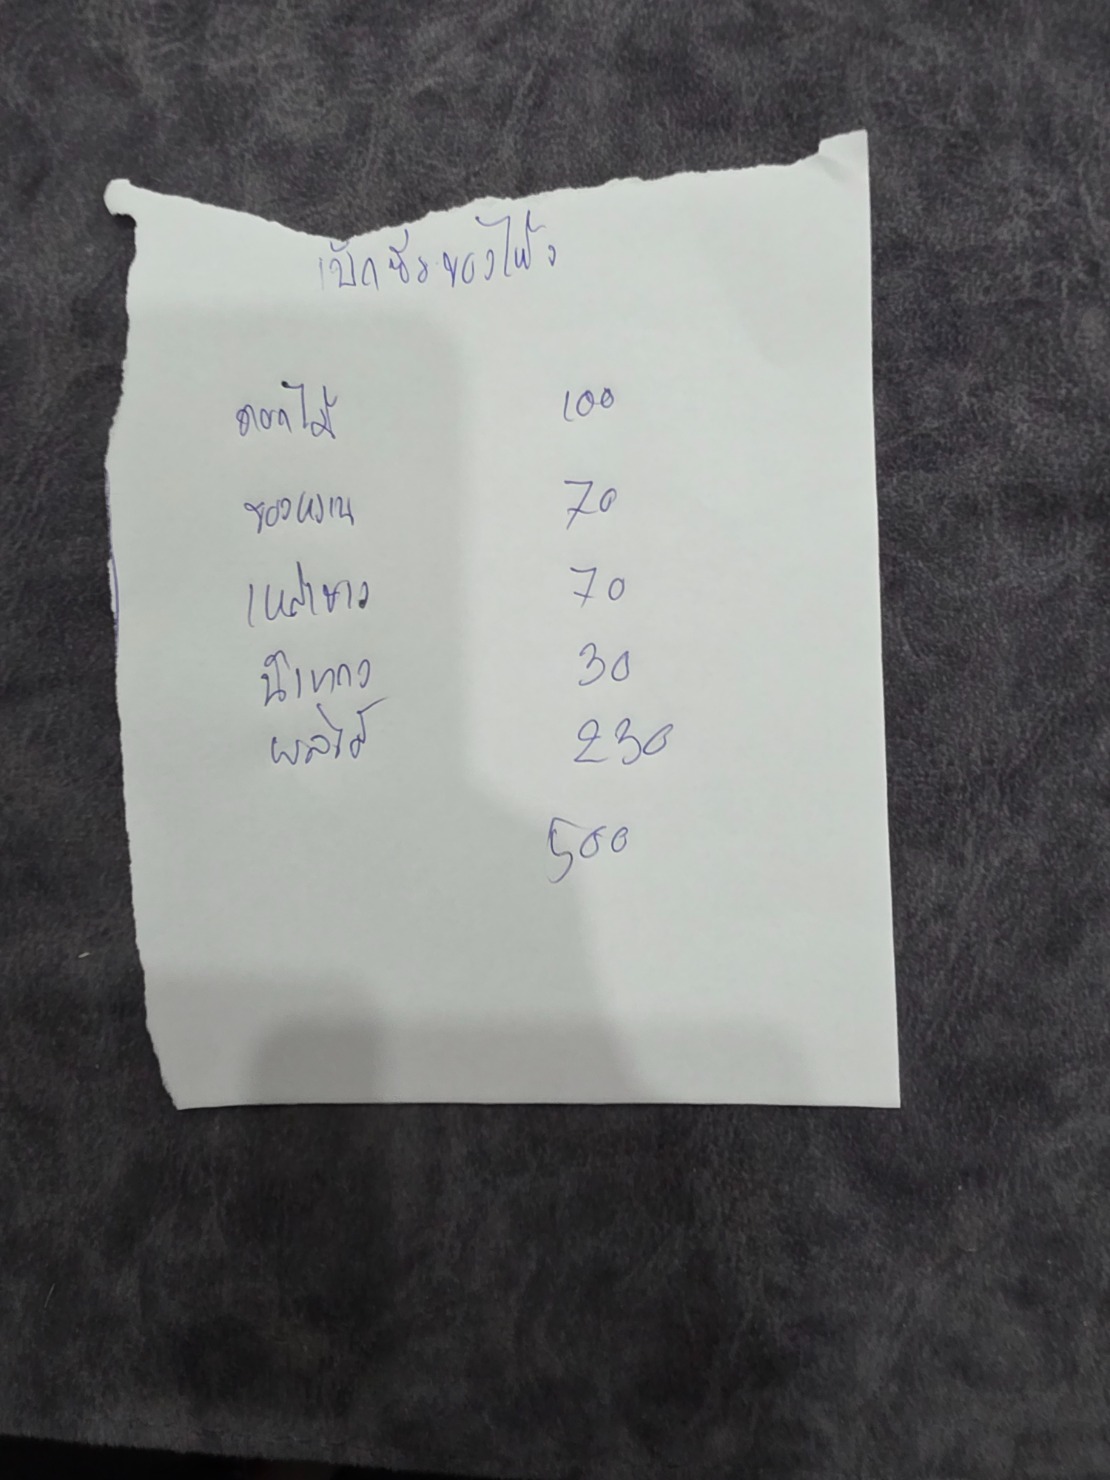 เบิกซื้อของไหว้
ดอกไม้ 100
ของหวาน 70
เหล้าขาว 70
30
ผลไม้ 230
500